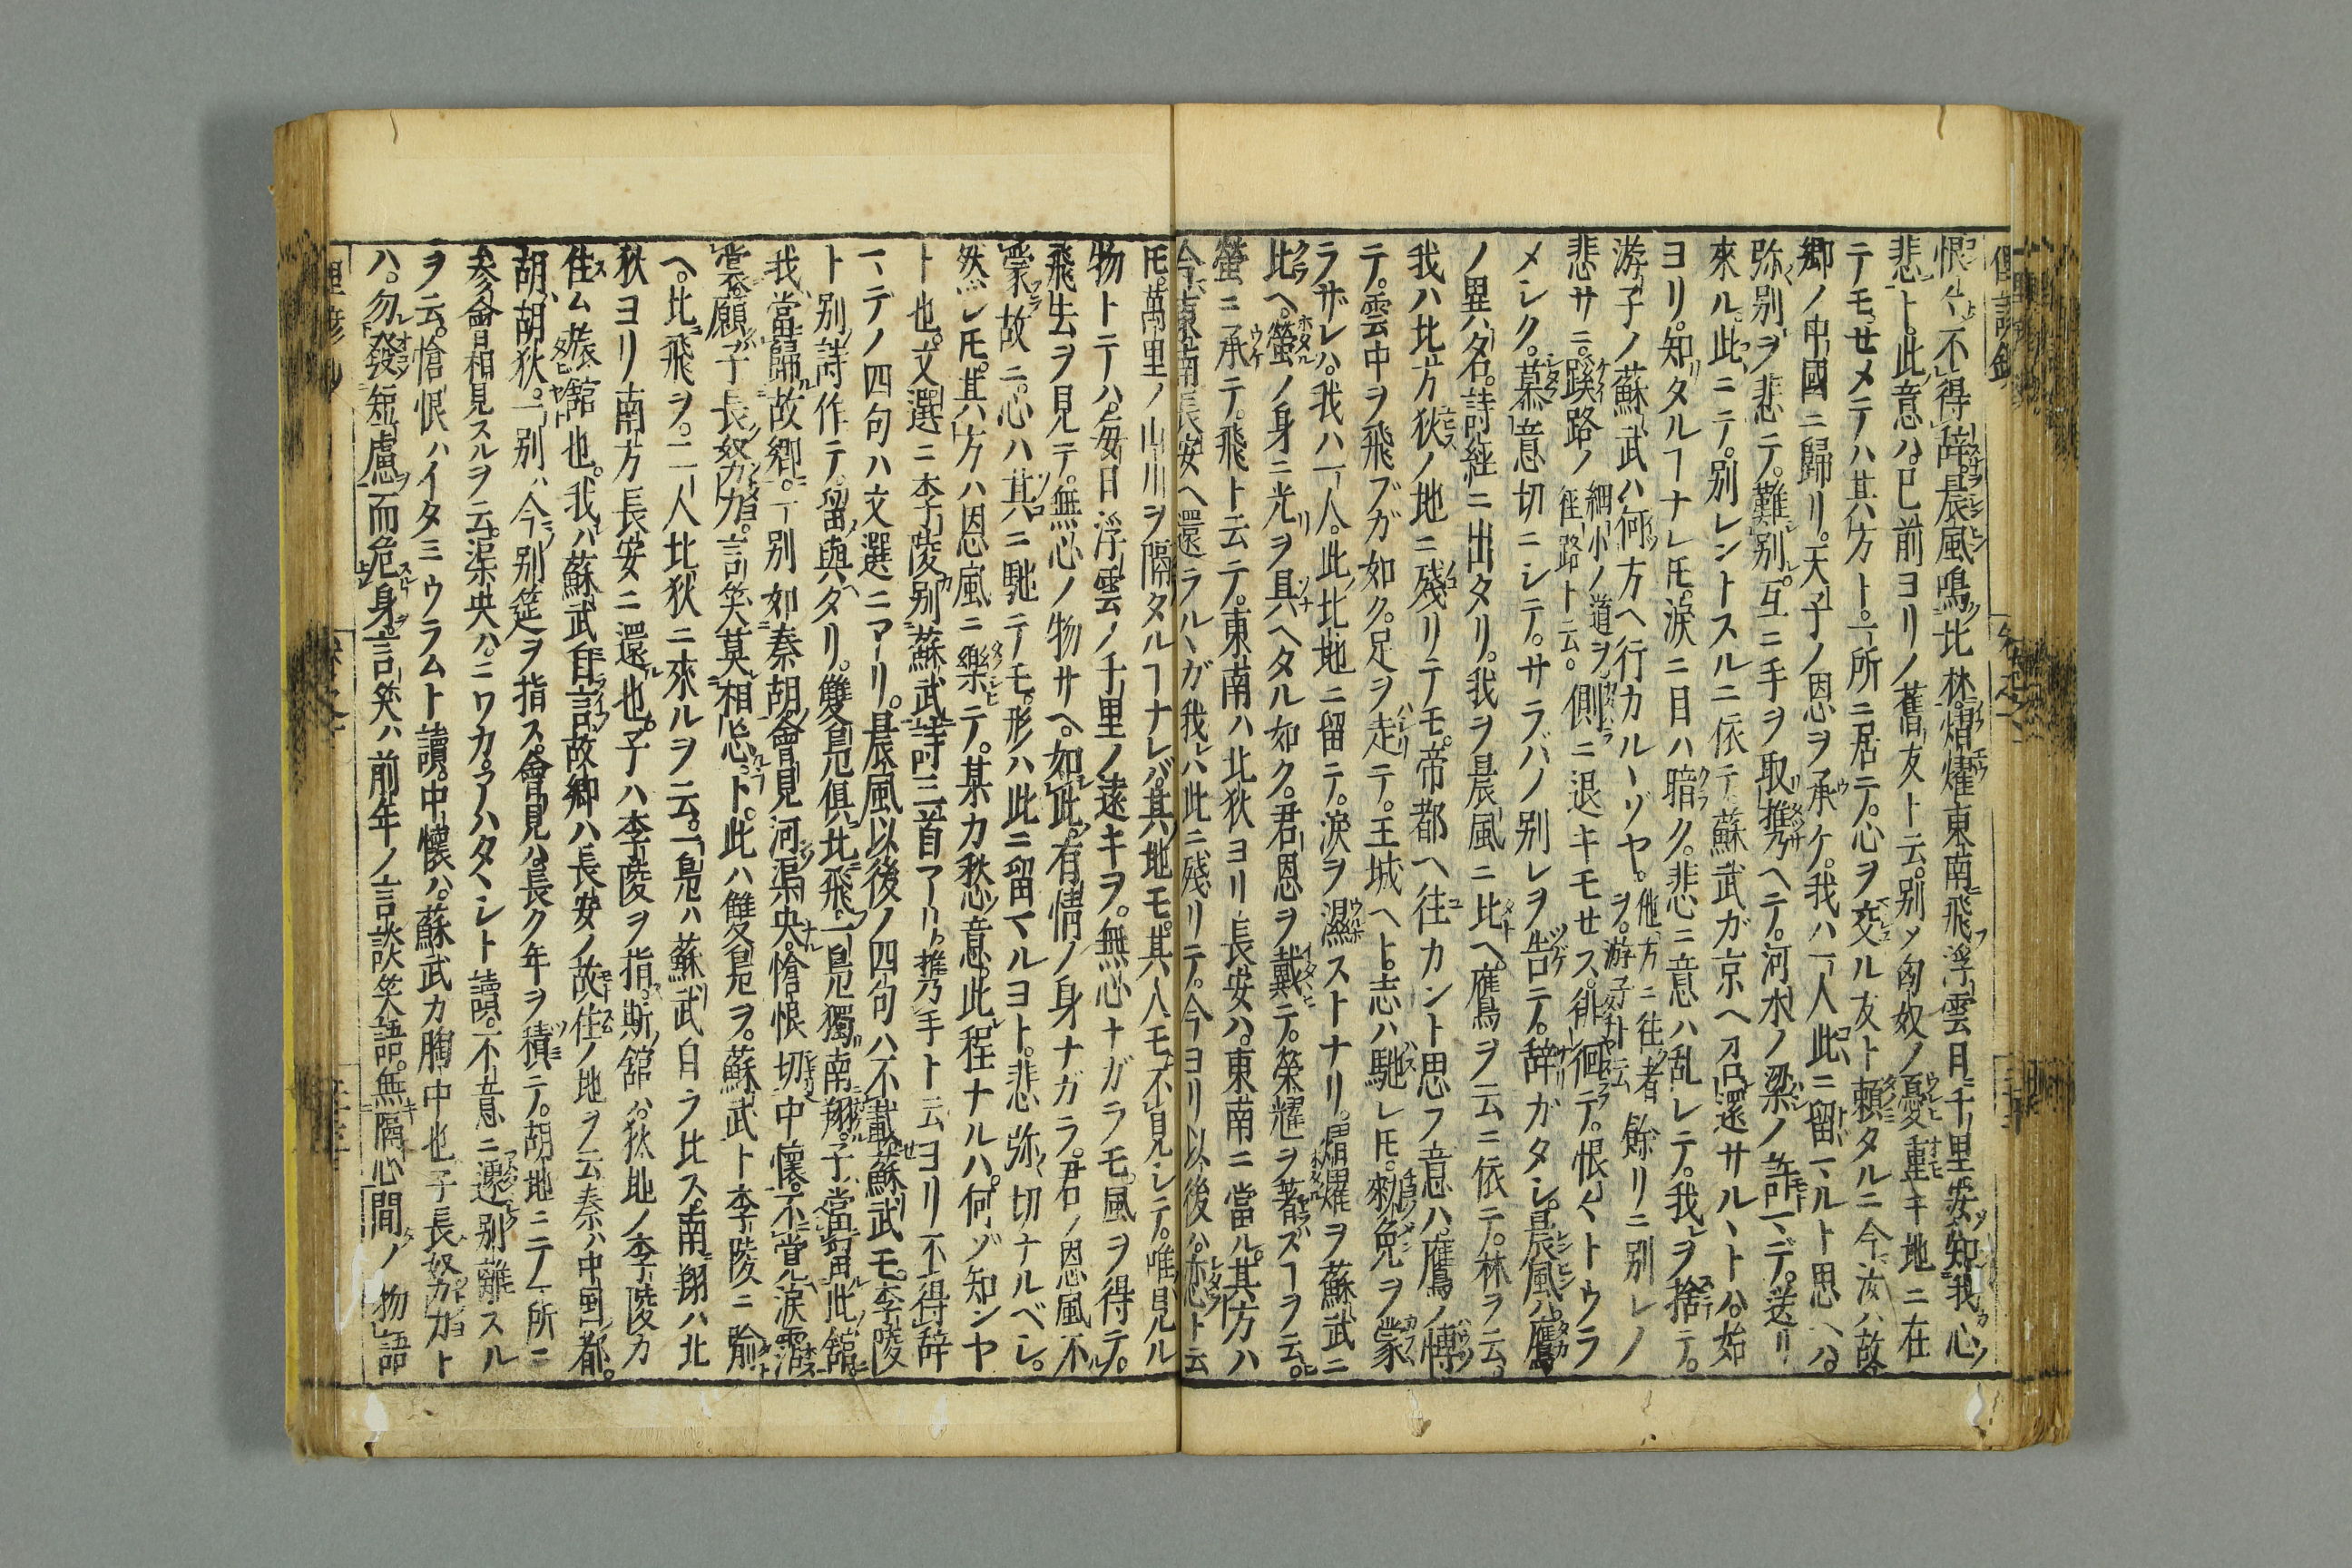 恨々不得辞晨風鳴北林熠燿東南飛浮雲日千里安知我心
悲ト。此意ハ。已前ヨリノ舊友ト云。別メ匈奴ノ憂重キ地ニ在
テモ。せメテハ其方ト。一所ニ居テ。心ヲ交ル友ト頼タルニ今汝ハ故
郷ノ中國ニ歸リ。天子ノ恩ヲ承ケ。我ハ一人此ニ留マルト思ヘハ。
弥別ヲ悲テ。難別。互ニ手ヲ取携ヘテ。河水ノ梁ノ許マデ。送リ
來ル。此ニテ。別レントスルニ依テ蘇武ガ京ヘ召還サルヽトハ。始
ヨリ。知タルヿナレ𪜈。涙ニ目ハ暗ク。悲ニ意ハ乱レテ。我ヲ捨テ。
游子ノ蘇武ハ何方ヘ行カルヽゾヤ。他方ニ往者ヲ。游子ト云餘リニ別レノ
悲サニ。蹊路ノ細小ノ道ヲ径路ト云。側ニ退キモせス。徘徊テ。恨々トウラ
メシク。慕意切ニシテ。サラバノ別レヲ告テ。辞ガタシ。晨風ハ。鷹
ノ異名。詩經ニ出タリ。我ヲ晨風ニ比ヘ。鷹ヲ云ニ依テ。林ヲ云。
我ハ北方狄ノ地ニ殘リテモ。帝都ヘ往カント思フ意ハ。鷹ノ慱
テ。雲中ヲ飛ブガ如ク。足ヲ走テ。王城ヘト。志ハ馳レ𪜈。勅免ヲ蒙
ラザレハ。我ハ一人。此北地ニ留テ。涙ヲ濕ストナリ。熠燿ヲ蘇武ニ
比ヘ。螢ノ身ニ光ヲ具ヘタル如ク。君恩ヲ戴テ。榮耀ヲ著スヿヲ云。
螢ニ承テ。飛ト云テ。東南ハ北狄ヨリ長安ハ。東南ニ當ル。其方ハ
今東南長安ヘ還ラルヽガ我ハ此ニ殘リテ。今ヨリ以後ハ。戀ト云
𪜈。萬里ノ山川ヲ隔タルヿナレバ。其地モ。其人モ不見シテ。唯見ル
物トテハ。毎日浮雲ノ千里ノ遠キヲ。無心ナガラモ。風ヲ得テ。
飛去ヲ見テ。無心ノ物サヘ。如此。有情ノ身ナガラ。君ノ恩風不
蒙故ニ。心ハ其ニ馳テモ。形ハ此ニ留マルヨト。悲弥切ナルベシ。
然シ𪜈。其方ハ恩風ニ樂テ。某カ愁意。此程ナルハ。何ゾ知ンヤ
ト也。文選ニ李陵別蘇武詩三首アリ。携手ト云ヨリ不得辞
マデノ四句ハ文選ニアリ。晨風以後ノ四句ハ不載。蘇武モ。李陵
ト別詩作テ。留與タリ。雙鳧俱北飛。一鳧獨南翔。子當留此舘。
我當歸故郷。一別如秦胡。會見河渠央。愴恨切中懷。不覚涙霑
裳。願子長努力。言笑莫相忘ト。此ハ雙鳧ヲ。蘇武ト李陵ニ喩
ヘ。北飛ヲ。二人北狄ニ來ルヲ云。一鳧ハ蘇武自ラ比ス。南翔ハ北
狄ヨリ南方長安ニ還也。子ハ李陵ヲ指。斯舘ハ。狄地ノ李陵カ
住ム旅舘也。我ハ蘇武自言。故郷ハ長安ノ故住ノ地ヲ云秦ハ中国都。
胡ハ胡狄。一別ハ今別筵ヲ指ス。會見ハ。長ク年ヲ積テ。胡地ニテ一所ニ
参會相見スルヲ云。渠央ハ。ニワカ。アハタヽシト讀。不意ニ遽別離スル
ヲ云。愴恨ハイタミウラムト讀。中懷ハ。蘇武カ胸中也子長努力ト
ハ。勿發短慮而危身。言笑ハ前年ノ言談笑語。無隔心間ノ物語